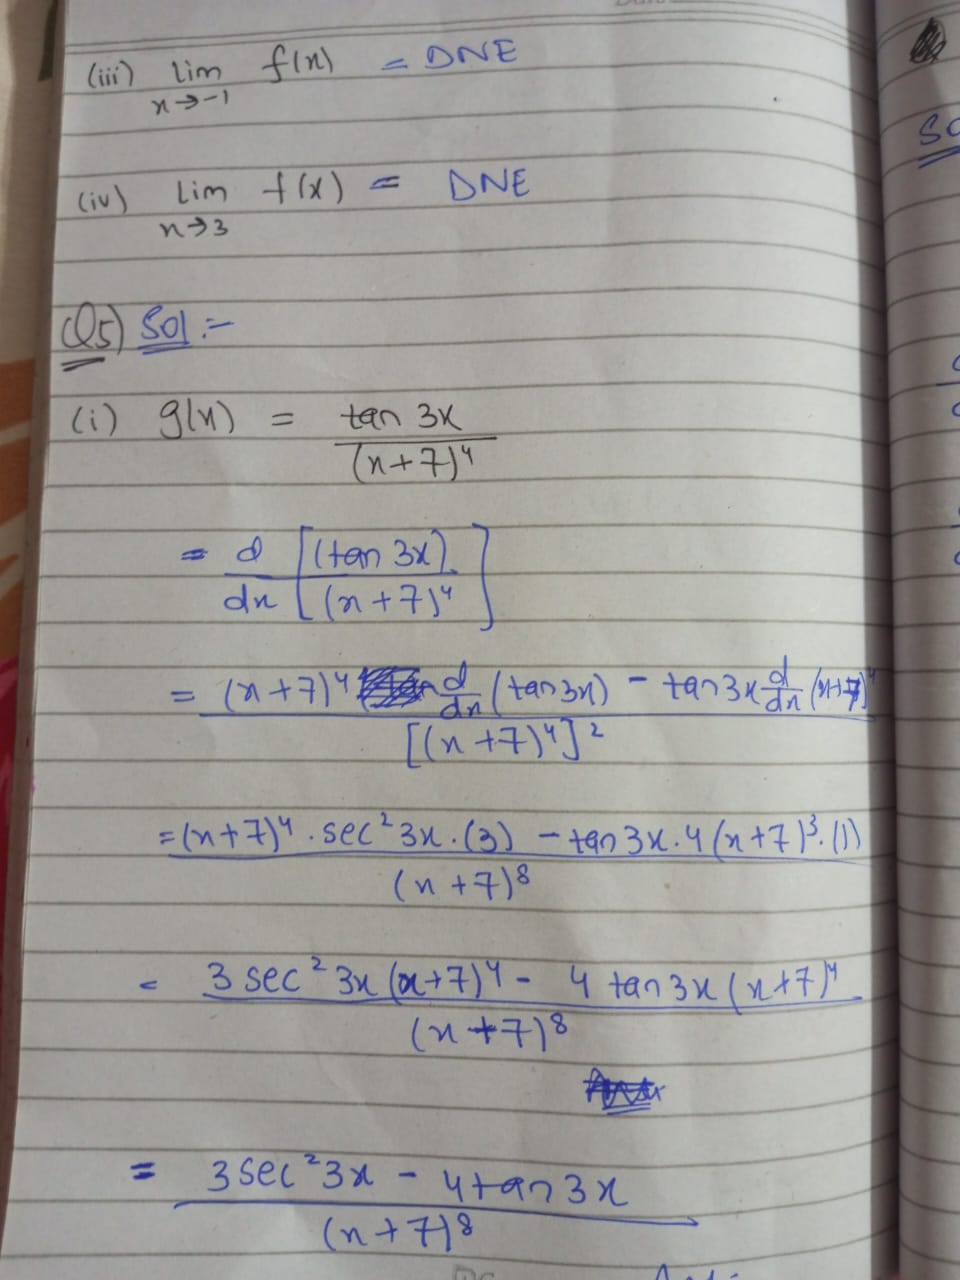 (iii) lim f(x) = DNE
x→-1
(iv) Lim f(x) = DNE
x→3
Q5) Sol :-
(i) g(x) = tan 3x
(x+7)⁴
= d [(tan 3x)]
dx [(x+7)⁴]
= (x+7)⁴ d/dx (tan3x) - tan3x d/dx (x+7)⁴
[(x+7)⁴]²
= (x+7)⁴ . sec² 3x . (3) - tan 3x . 4 (x+7)³ . (1)
(x+7)⁸
= 3 sec² 3x (x+7)⁴ - 4 tan 3x (x+7)⁴
(x+7)⁸
= 3 sec² 3x - 4 tan 3x
(x+7)⁸
So